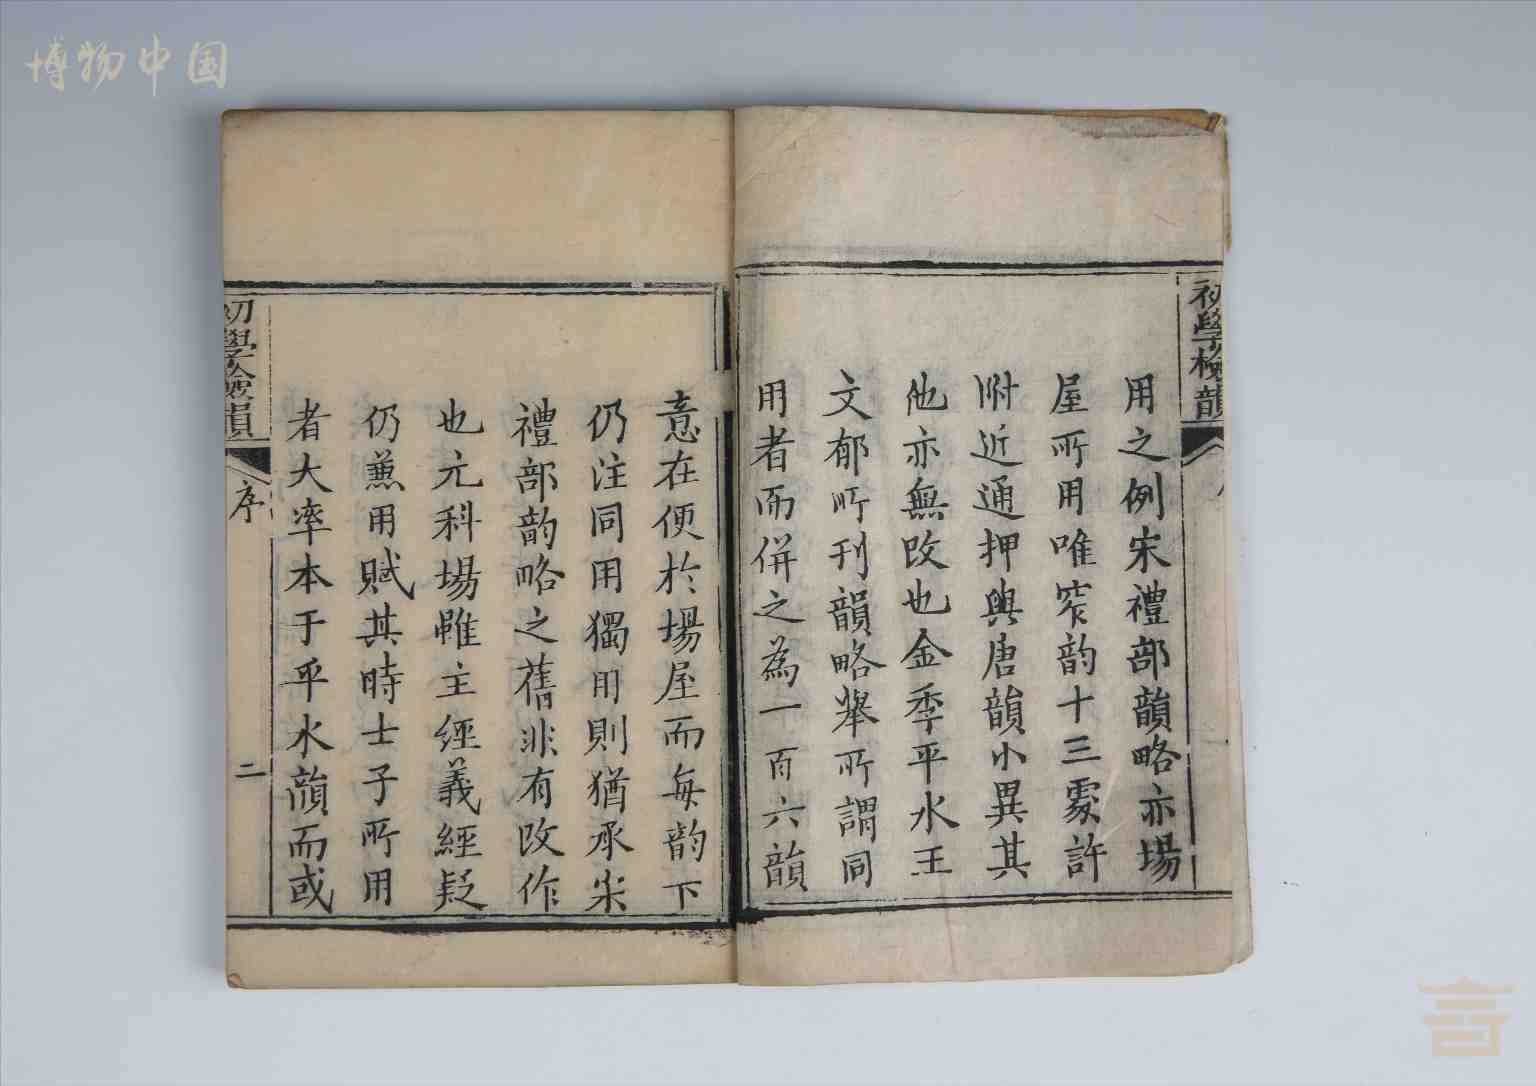 博物中国
初學檢韻
用之例宋禮部韻略亦場
屋所用唯窄韵十三處許
附近通押與唐韻小異其
他亦無改也金季平水王
文郁所刊韻略舉所謂同
用者而併之為一百六韻
意在便於場屋而每韵下
仍注同用獨用則猶承宋
禮部韵略之舊非有改作
也元科場雖主經義經疑
仍兼用賦其時士子所用
者大率本于平水韻而或
初學檢韻
序
二